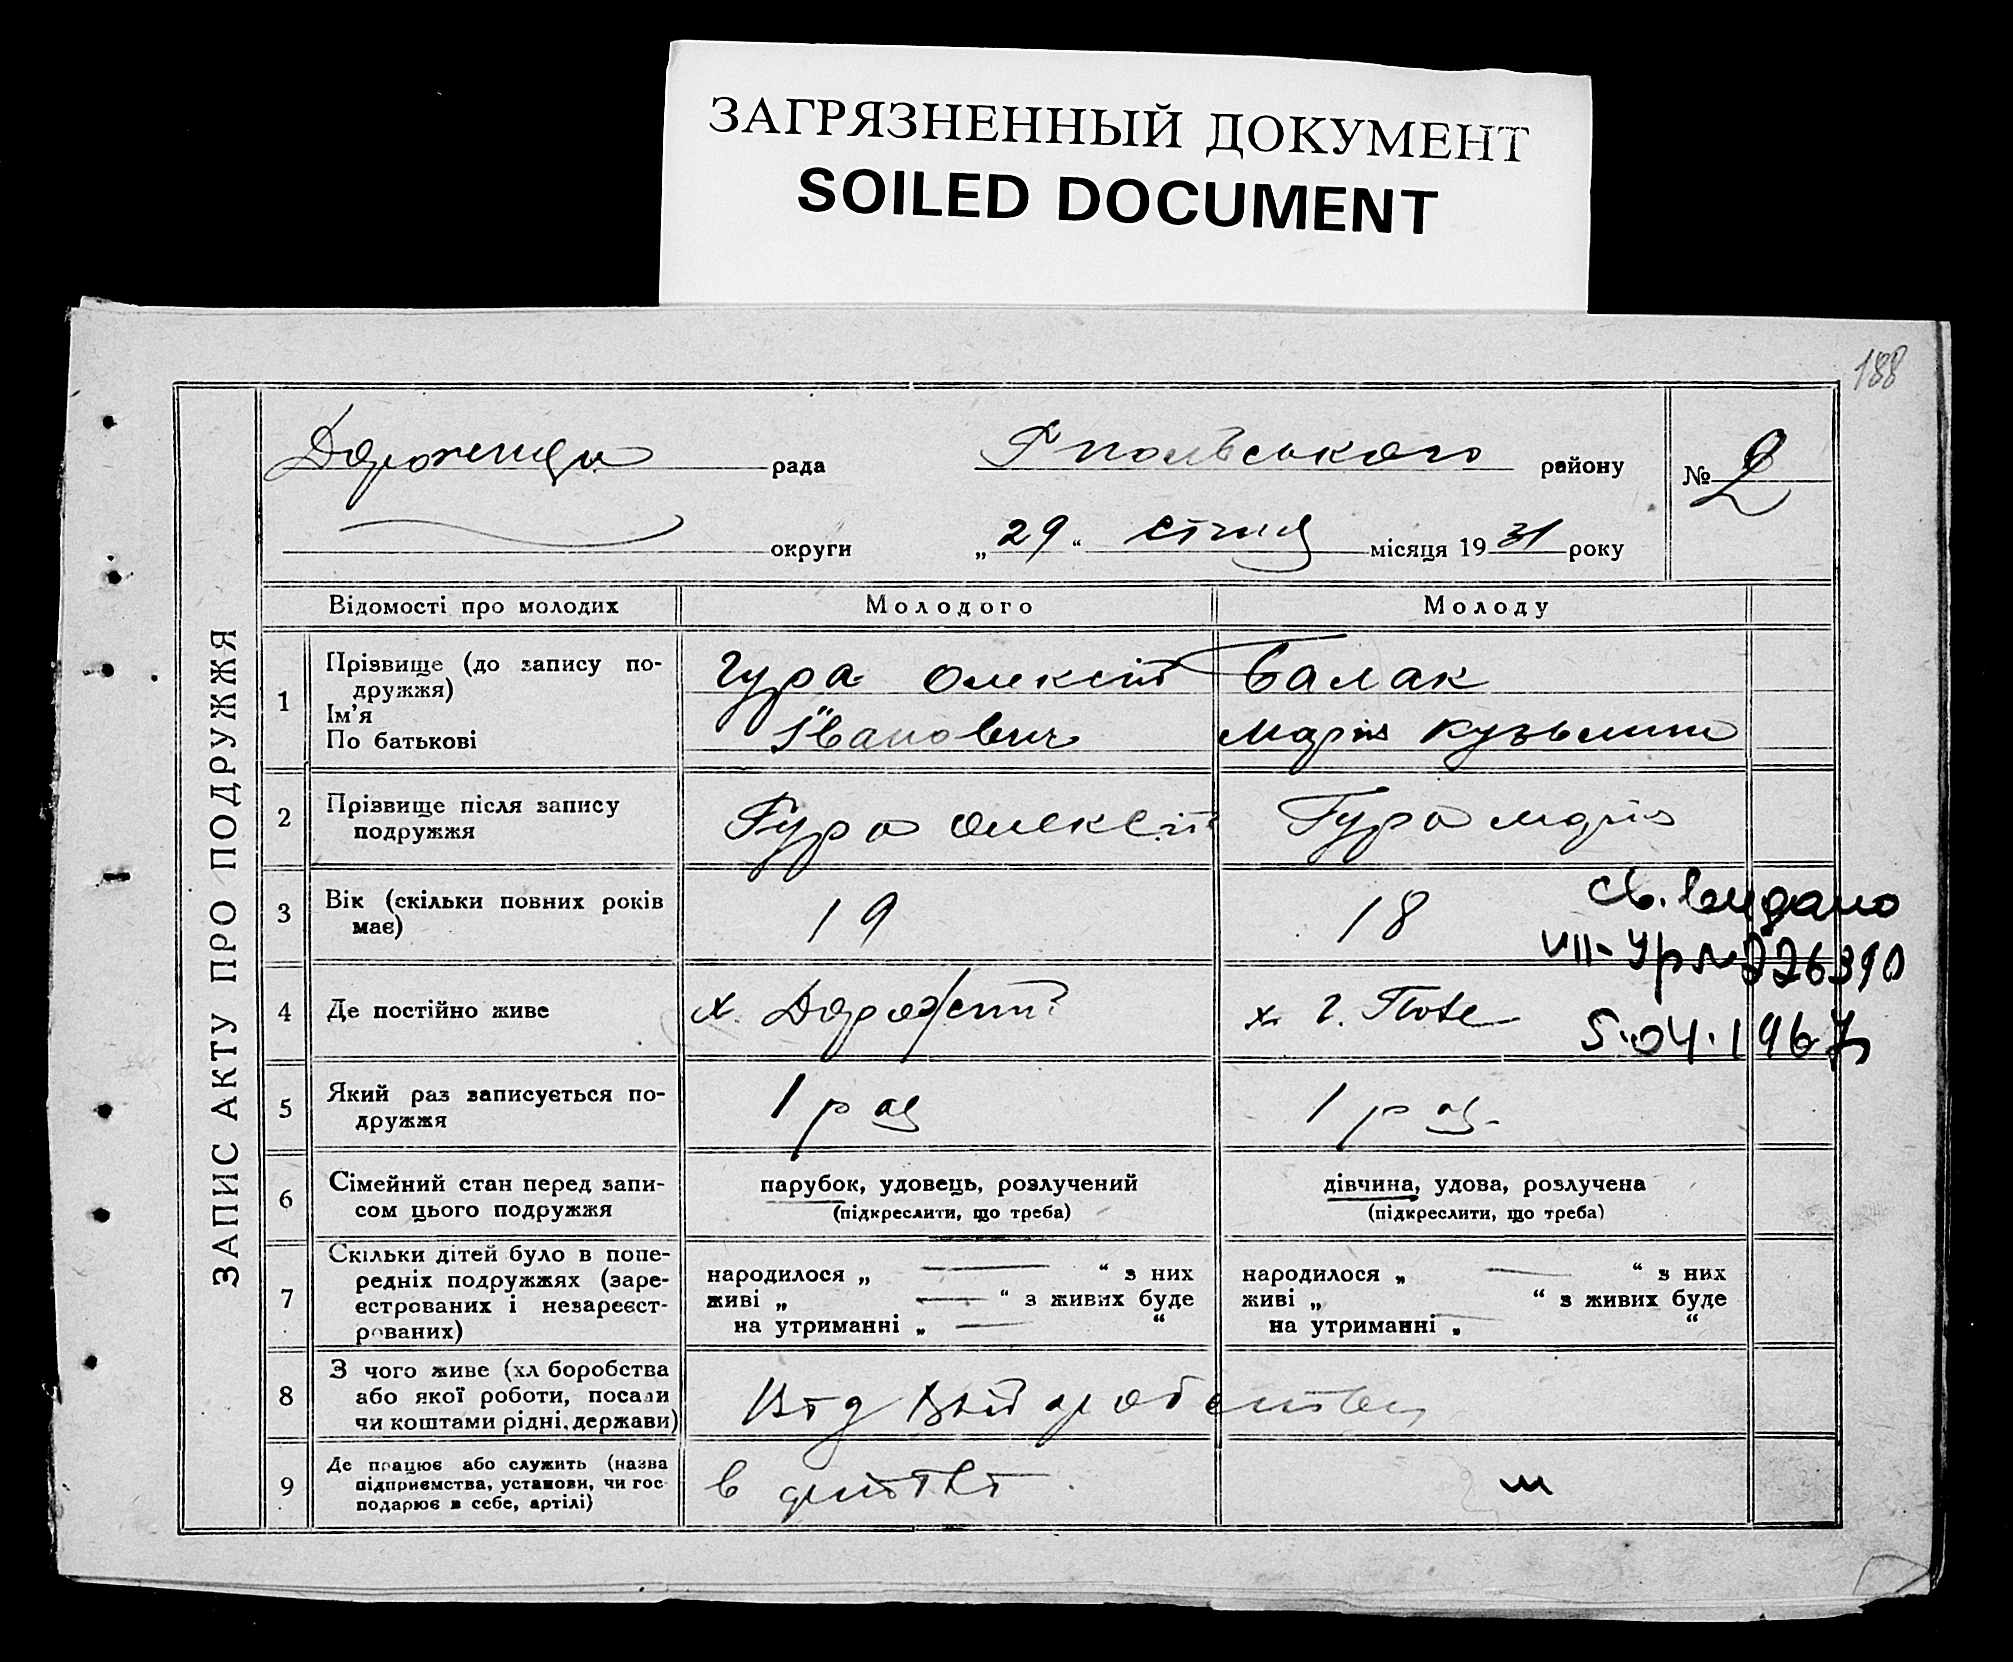 ЗАГРЯЗНЕННЫЙ ДОКУМЕНТ
SOILED DOCUMENT
188
ЗАПИС АКТУ ПРО ПОДРУЖЖЯ
рада району № 2
округи „ 29 “ січня місяця 19 31 року
Відомості про молодих Молодого Молоду
1 Прізвище (до запису по-
дружжя)
Ім’я
По батькові
Гура Олексій Балак
Іванович Марія
2 Прізвище після запису
подружжя
Гура Олексій Гура Марія
3 Вік (скільки повних років
має)
19 18
св. видано
VII-УР № 226390
5.04.1967
4 Де постійно живе х. х.
5 Який раз записується по-
дружжя
1 раз 1 раз.
6 Сімейний стан перед запи-
сом цього подружжя
парубок, удовець, розлучений
(підкреслити, що треба)
дівчина, удова, розлучена
(підкреслити, що треба)
7 Скільки дітей було в попе-
редніх подружжях (заре-
єстрованих і незареєст-
рованих)
народилося „ — “ з них
живі „ — “ з живих буде
на утриманні „ — “
народилося „ — “ з них
живі „ “ з живих буде
на утриманні „ “
8 З чого живе (хл боробства
або якої роботи, посади
чи коштами рідні, держави)
9 Де працює або служить (назва
підприємства, установи, чи гос-
подарює в себе, артілі)
в